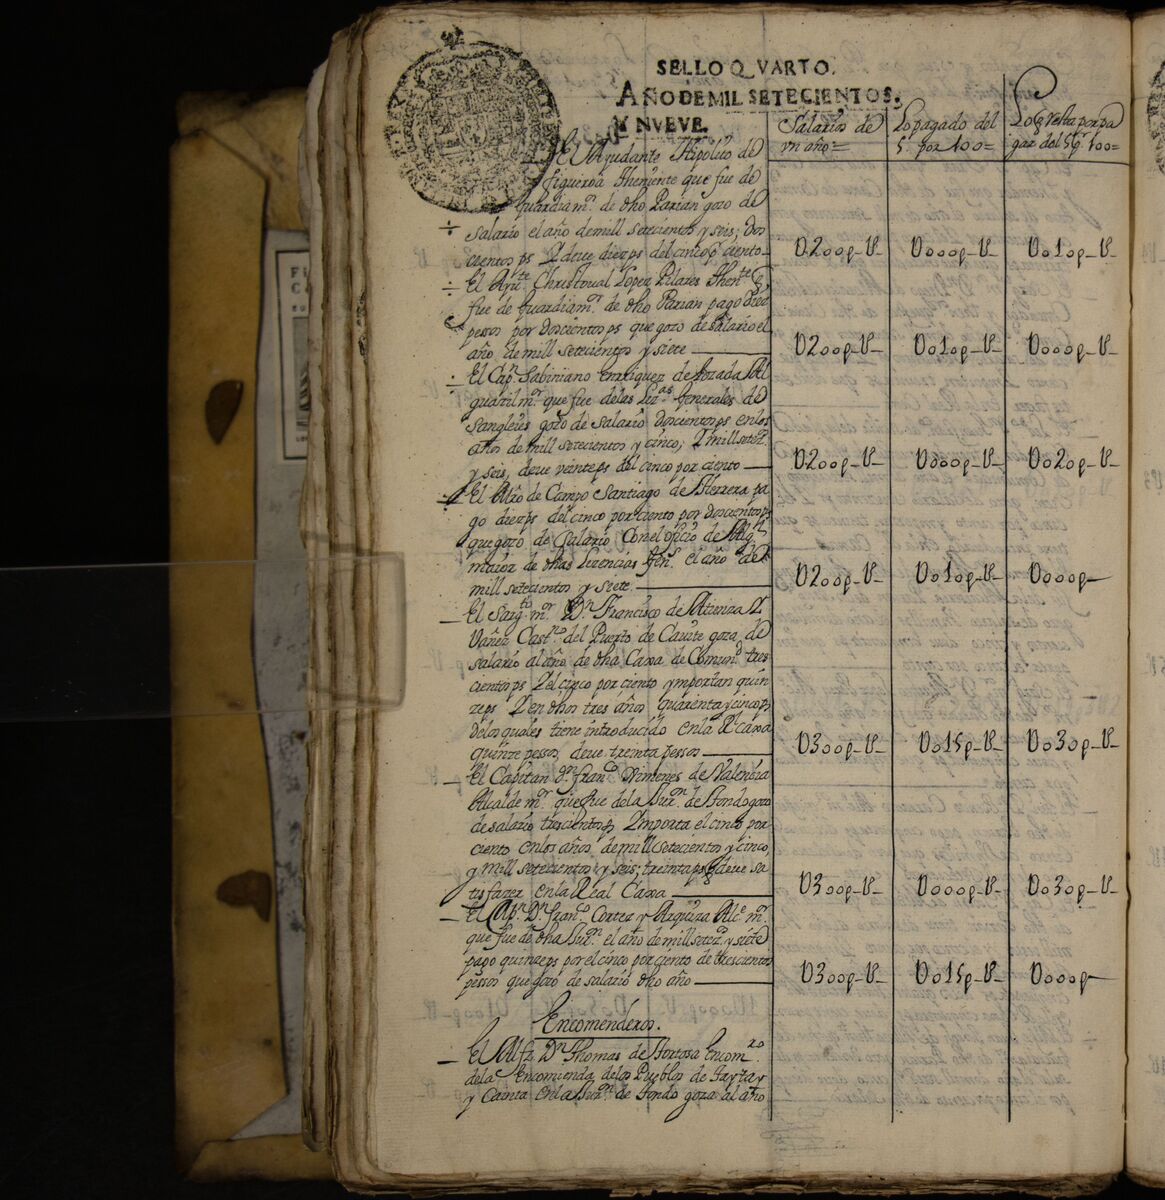 SELLO QVARTO.
AÑO DE MIL SETECIENTOS,
Y NVEVE.
Salarios de
vn año=
Lo pagado del
5. por 100=
Lo q resta por pa
gar del 5 p. 100=
El Ayudante Hipolito de
figueroa Theniente que fue de
guardia mr. de dho Parian gozo de
salario el año de mill setecientos y seis; dos
cientos ps Y deve diez ps del cinco p ciento
U200p-U-
U000p-U-
U010p-U-
El Ayte. Christoual Lopez Pilares Thente q
fue de guardia mr. de dho Parian pago diez
pessos por doscientos ps que gozo de salario el
año de mill setecientos y siete
U200p-U-
U010p-U-
U000p-U-
El Capn. Sabiniano enrriquez de Lozada Al
guazil mr. que fue de las Lizas. Generales de
Sangleyes gozo de salario doscientos ps en los
años de mill setecientos y cinco, Y mill setezs.
y seis, deve veinte ps del cinco por ciento
U200p-U-
U000p-U-
U020p-U-
El Mro de Campo Santiago de Herrera pa
go diez ps del cinco por ciento por doscientos ps
que gozo de Salario Con el oficio de Alğl
maior de dhas Lizencias Gens. el año de
mill setecientos y siete
U200p-U-
U010p-U-
U000p-
El Sargto. mr. Dn. Francisco de Atienza Y
Vañez Castno. del Puerto de Cauite goza de
salario al año de dha Caxa de Comund. tres
cientos ps Y el cinco por ciento ymportan quin
ze ps Y en dhos tres años quarenta y cinco p,
de los quales tiene introducido en la Rl caxa
quinze pessos, deve treinta pessos
U300p-U-
U015p-U-
U030p-U-
El Capitan Dn. Franco. Ximenes de Valencia
Alcalde mr. que fue de la Jurn. de Tondo gozo
de salario trescientos ps Y importa el cinco por
ciento en los años de mill setecientos y cinco,
y mill setecientos y seis, treinta ps q deve sa
tisfazer en la Real Caxa
U300p-U-
U000p-U-
U030p-U-
El Capn. Dn. Franco. Cortez y Arquiza Alce. mr.
que fue de dha Jurn. el año de mill setezs. y siete
pago quinze ps por el cinco por ciento de trescientos
pessos que gozo de salario dho año
U300p-U-
U015p-U-
U000p-
Encomenderos.
El Alfz. Dn Thomas de Tortosa Encomro.
de la Encomienda de los Pueblos de Taytay
y Cainta en la Jurn. de Tondo goza al año